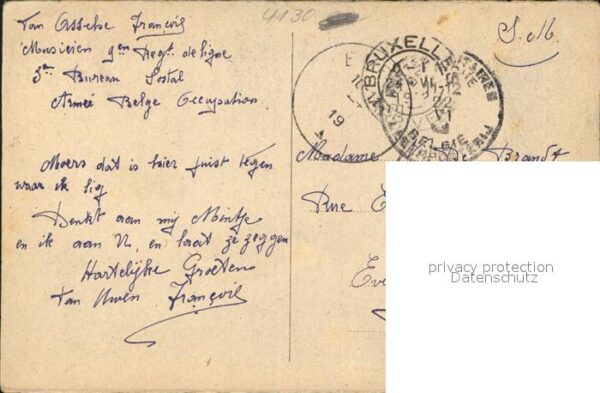 Van Assche François
Musicien 9en Regt de ligne
5en Bureau Postal
Armée Belge Occupation
Moers dat is hier juist tegen
waar ik lig
Denkt aan mij Mintje
en ik aan U, en laat ze zeggen
Hartelijke Groeten
Van Uwen François
4130
S.M.
BRUXELLES
22
19
Madame De Brandt
Rue E
Eve
privacy protection
Datenschutz